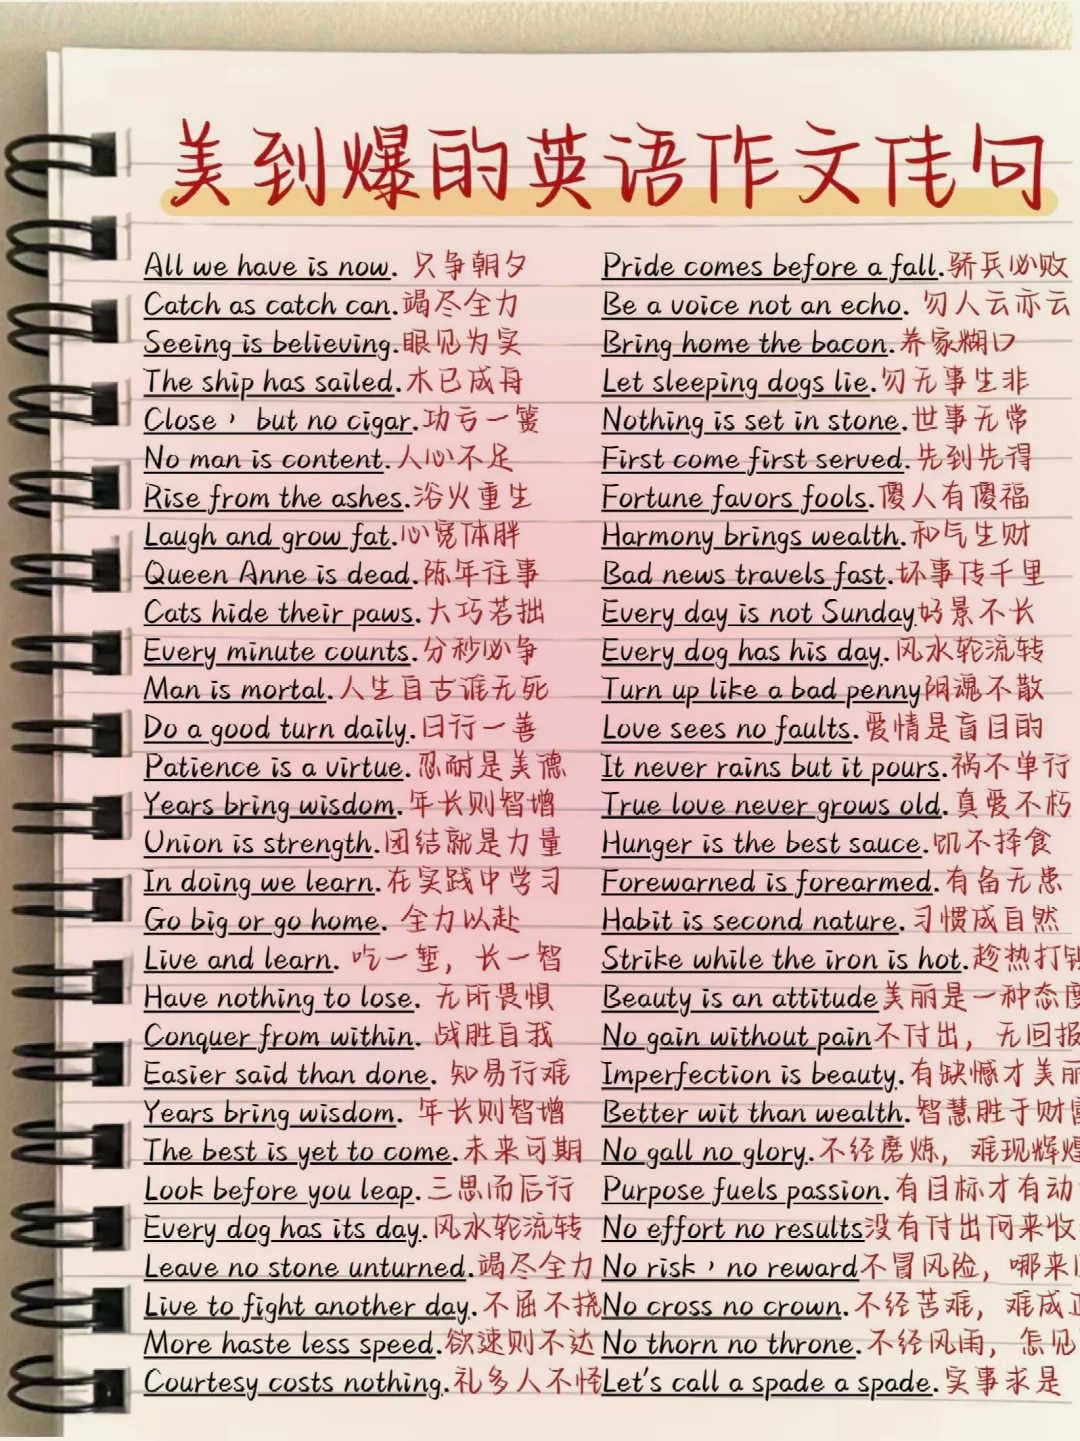 美到爆的英语作文佳句
All we have is now. 只争朝夕
Catch as catch can.竭尽全力
Seeing is believing.眼见为实
The ship has sailed.木已成舟
Close， but no cigar.功亏一篑
No man is content.人心不足
Rise from the ashes.浴火重生
Laugh and grow fat.心宽体胖
Queen Anne is dead.陈年往事
Cats hide their paws.大巧若拙
Every minute counts.分秒必争
Man is mortal.人生自古谁无死
Do a good turn daily.日行一善
Patience is a virtue.忍耐是美德
Years bring wisdom.年长则智增
Union is strength.团结就是力量
In doing we learn.在实践中学习
Go big or go home. 全力以赴
Live and learn. 吃一堑，长一智
Have nothing to lose. 无所畏惧
Conquer from within. 战胜自我
Easier said than done. 知易行难
Years bring wisdom. 年长则智增
The best is yet to come.未来可期
Look before you leap.三思而后行
Every dog has its day.风水轮流转
Leave no stone unturned.竭尽全力
Live to fight another day.不屈不挠
More haste less speed.欲速则不达
Courtesy costs nothing.礼多人不怪
Pride comes before a fall.骄兵必败
Be a voice not an echo. 勿人云亦云
Bring home the bacon.养家糊口
Let sleeping dogs lie.勿无事生非
Nothing is set in stone.世事无常
First come first served.先到先得
Fortune favors fools.傻人有傻福
Harmony brings wealth.和气生财
Bad news travels fast.坏事传千里
Every day is not Sunday好景不长
Every dog has his day.风水轮流转
Turn up like a bad penny阴魂不散
Love sees no faults.爱情是盲目的
It never rains but it pours.祸不单行
True love never grows old.真爱不朽
Hunger is the best sauce.饥不择食
Forewarned is forearmed.有备无患
Habit is second nature.习惯成自然
Strike while the iron is hot.趁热打
Beauty is an attitude美丽是一种态
No gain without pain不付出，无回
Imperfection is beauty.有缺憾才美
Better wit than wealth.智慧胜于财
No gall no glory.不经磨炼，难现辉
Purpose fuels passion.有目标才有动
No effort no results没有付出何来收
No risk，no reward不冒风险，哪来
No cross no crown.不经苦难，难成
No thorn no throne.不经风雨，怎见
Let's call a spade a spade.实事求是